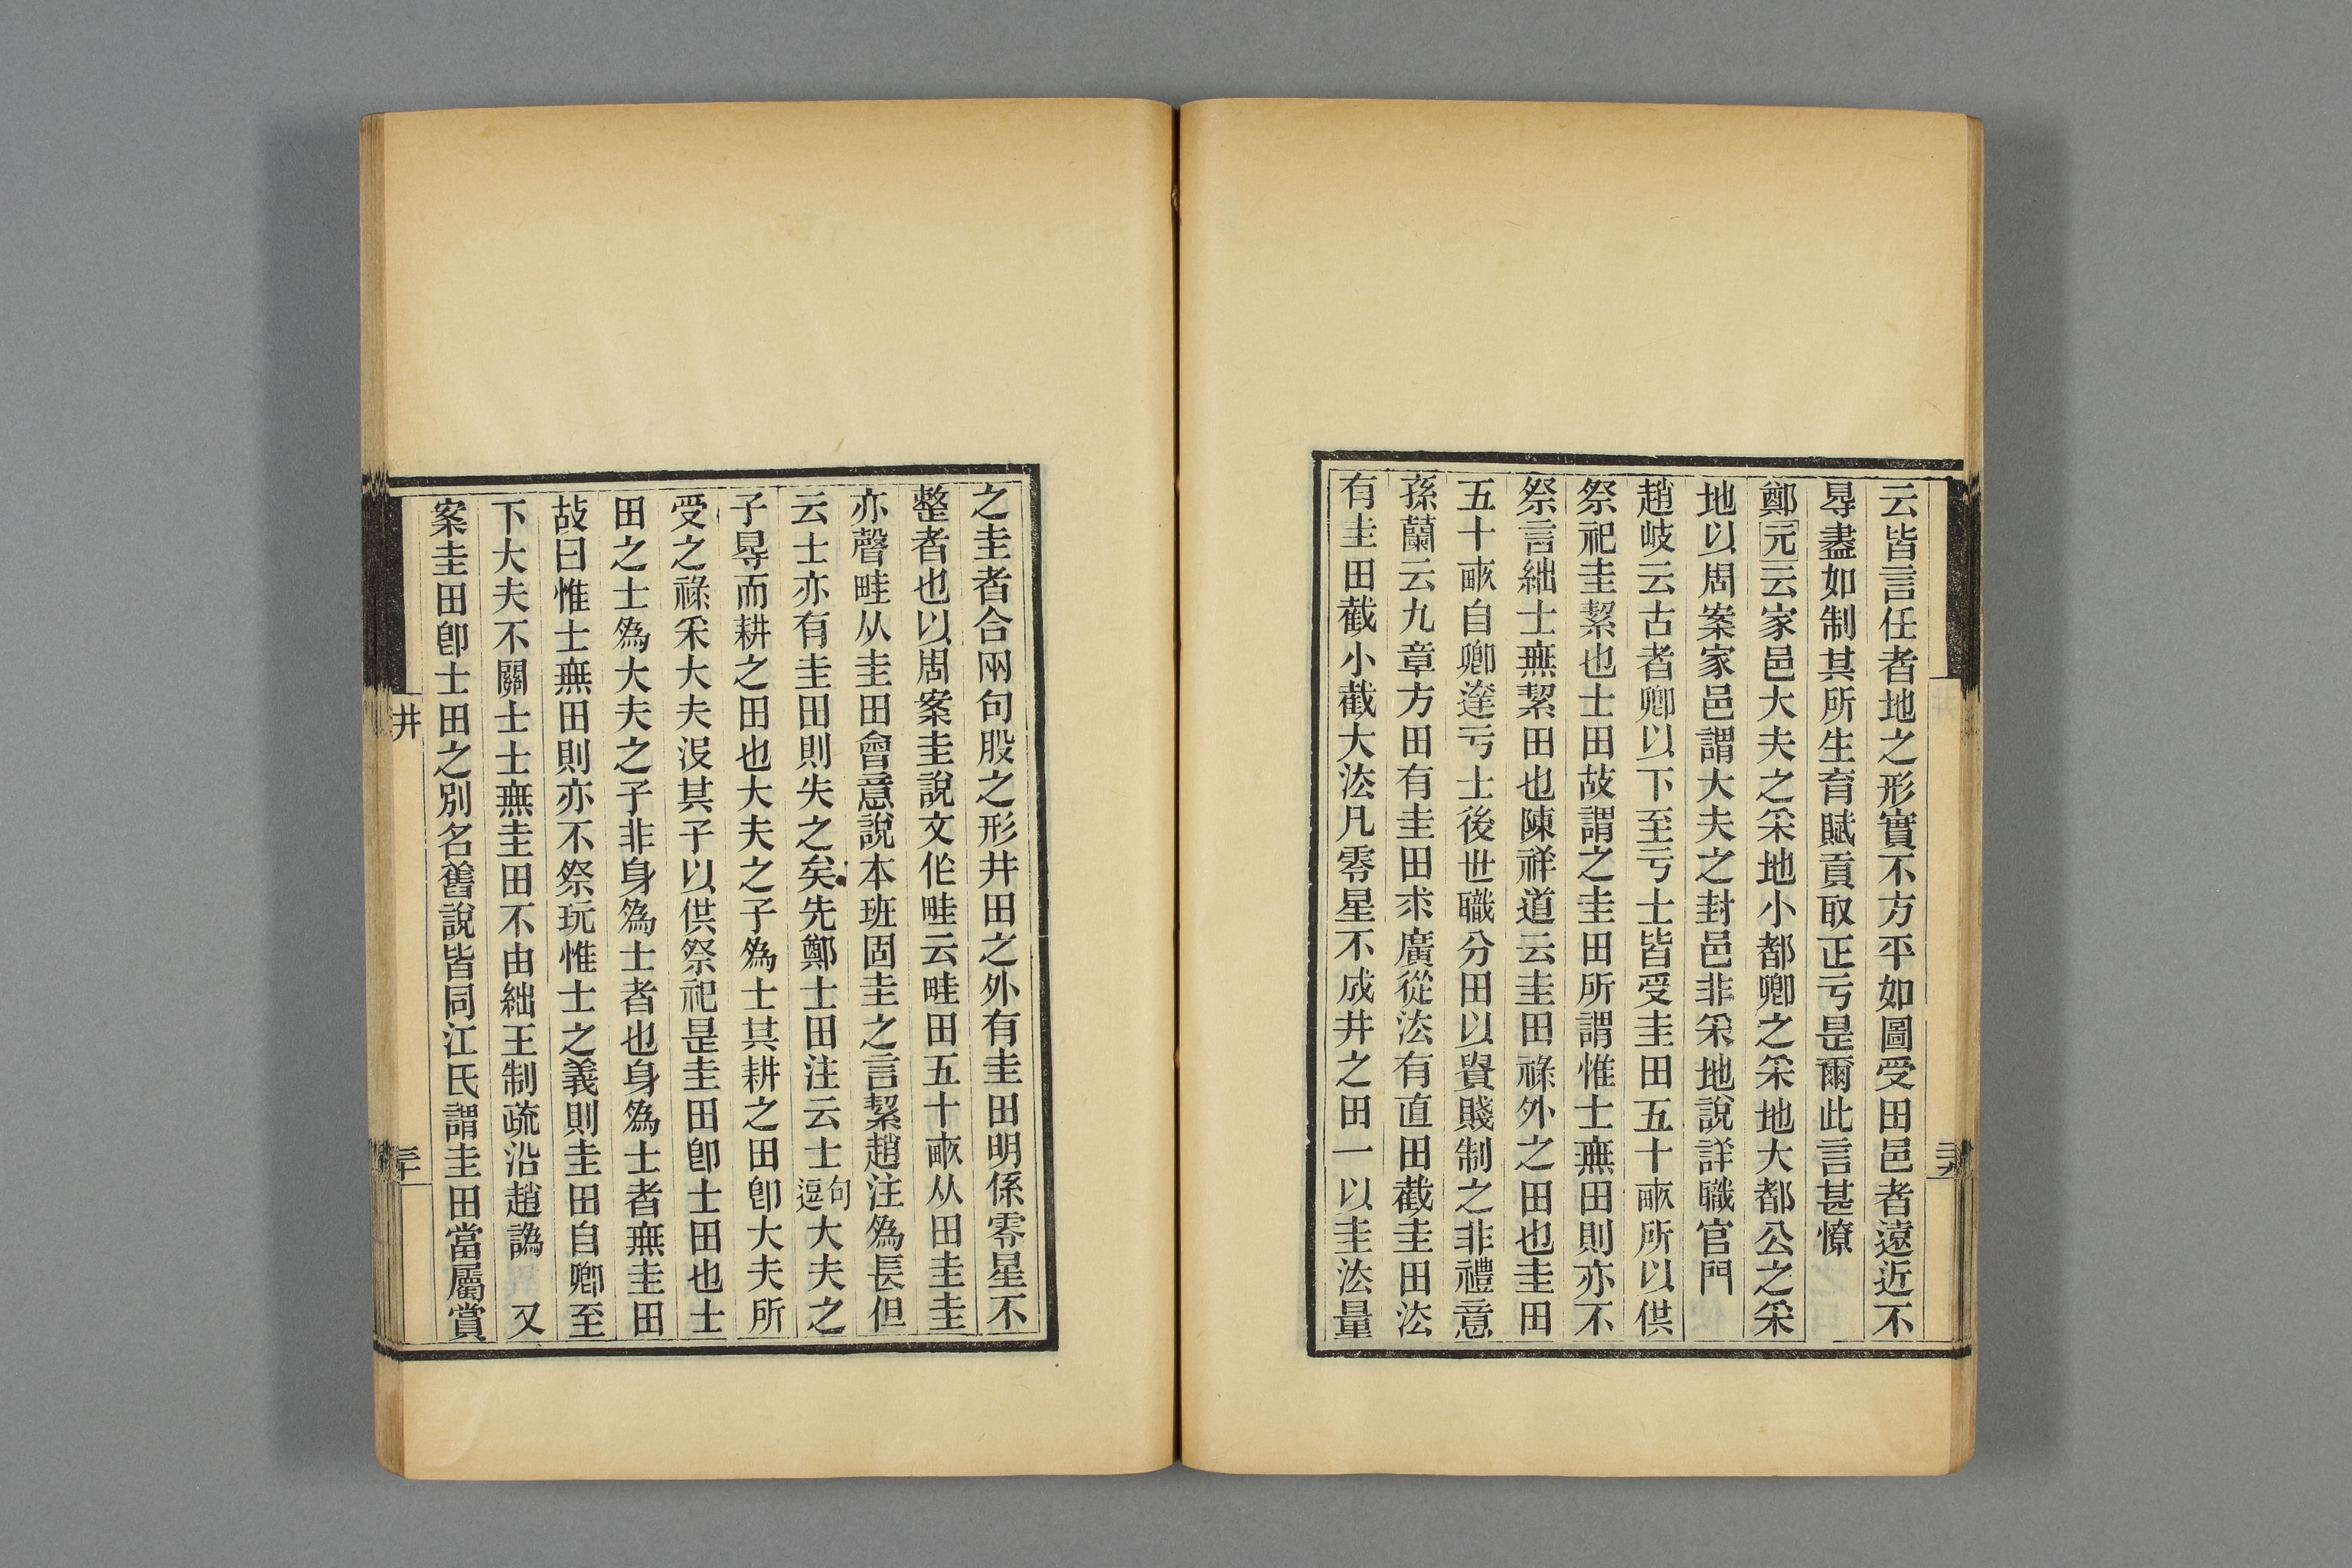 云皆言任者地之形實不方平如圖受田邑者遠近不
㝵盡如制其所生育賦貢取正亏是爾此言甚憭
鄭元云家邑大夫之采地小都卿之采地大都公之采
地以周案家邑謂大夫之封邑非采地說詳職官門
趙岐云古者卿以下至亏士皆受圭田五十畞所以供
祭祀圭絜也士田故謂之圭田所謂惟士無田則亦不
祭言絀士無絜田也陳祥道云圭田祿外之田也圭田
五十畞自卿達亏士後世職分田以貴賤制之非禮意
孫蘭云九章方田有圭田求廣從法有直田截圭田法
有圭田截小截大法凡零星不成井之田一以圭法量
之圭者合兩句股之形井田之外有圭田明係零星不
整者也以周案圭說文作畦云畦田五十畞从田圭圭
亦聲畦从圭田會意說本班固圭之言絜趙注爲長但
云士亦有圭田則失之矣先鄭士田注云士句逗大夫之
子㝵而耕之田也大夫之子爲士其耕之田卽大夫所
受之祿采大夫沒其子以供祭祀是圭田卽士田也士
田之士爲大夫之子非身爲士者也身爲士者無圭田
故曰惟士無田則亦不祭玩惟士之義則圭田自卿至
下大夫不關士士無圭田不由絀王制疏沿趙譌 又
案圭田卽士田之別名舊說皆同江氏謂圭田當屬賞
井